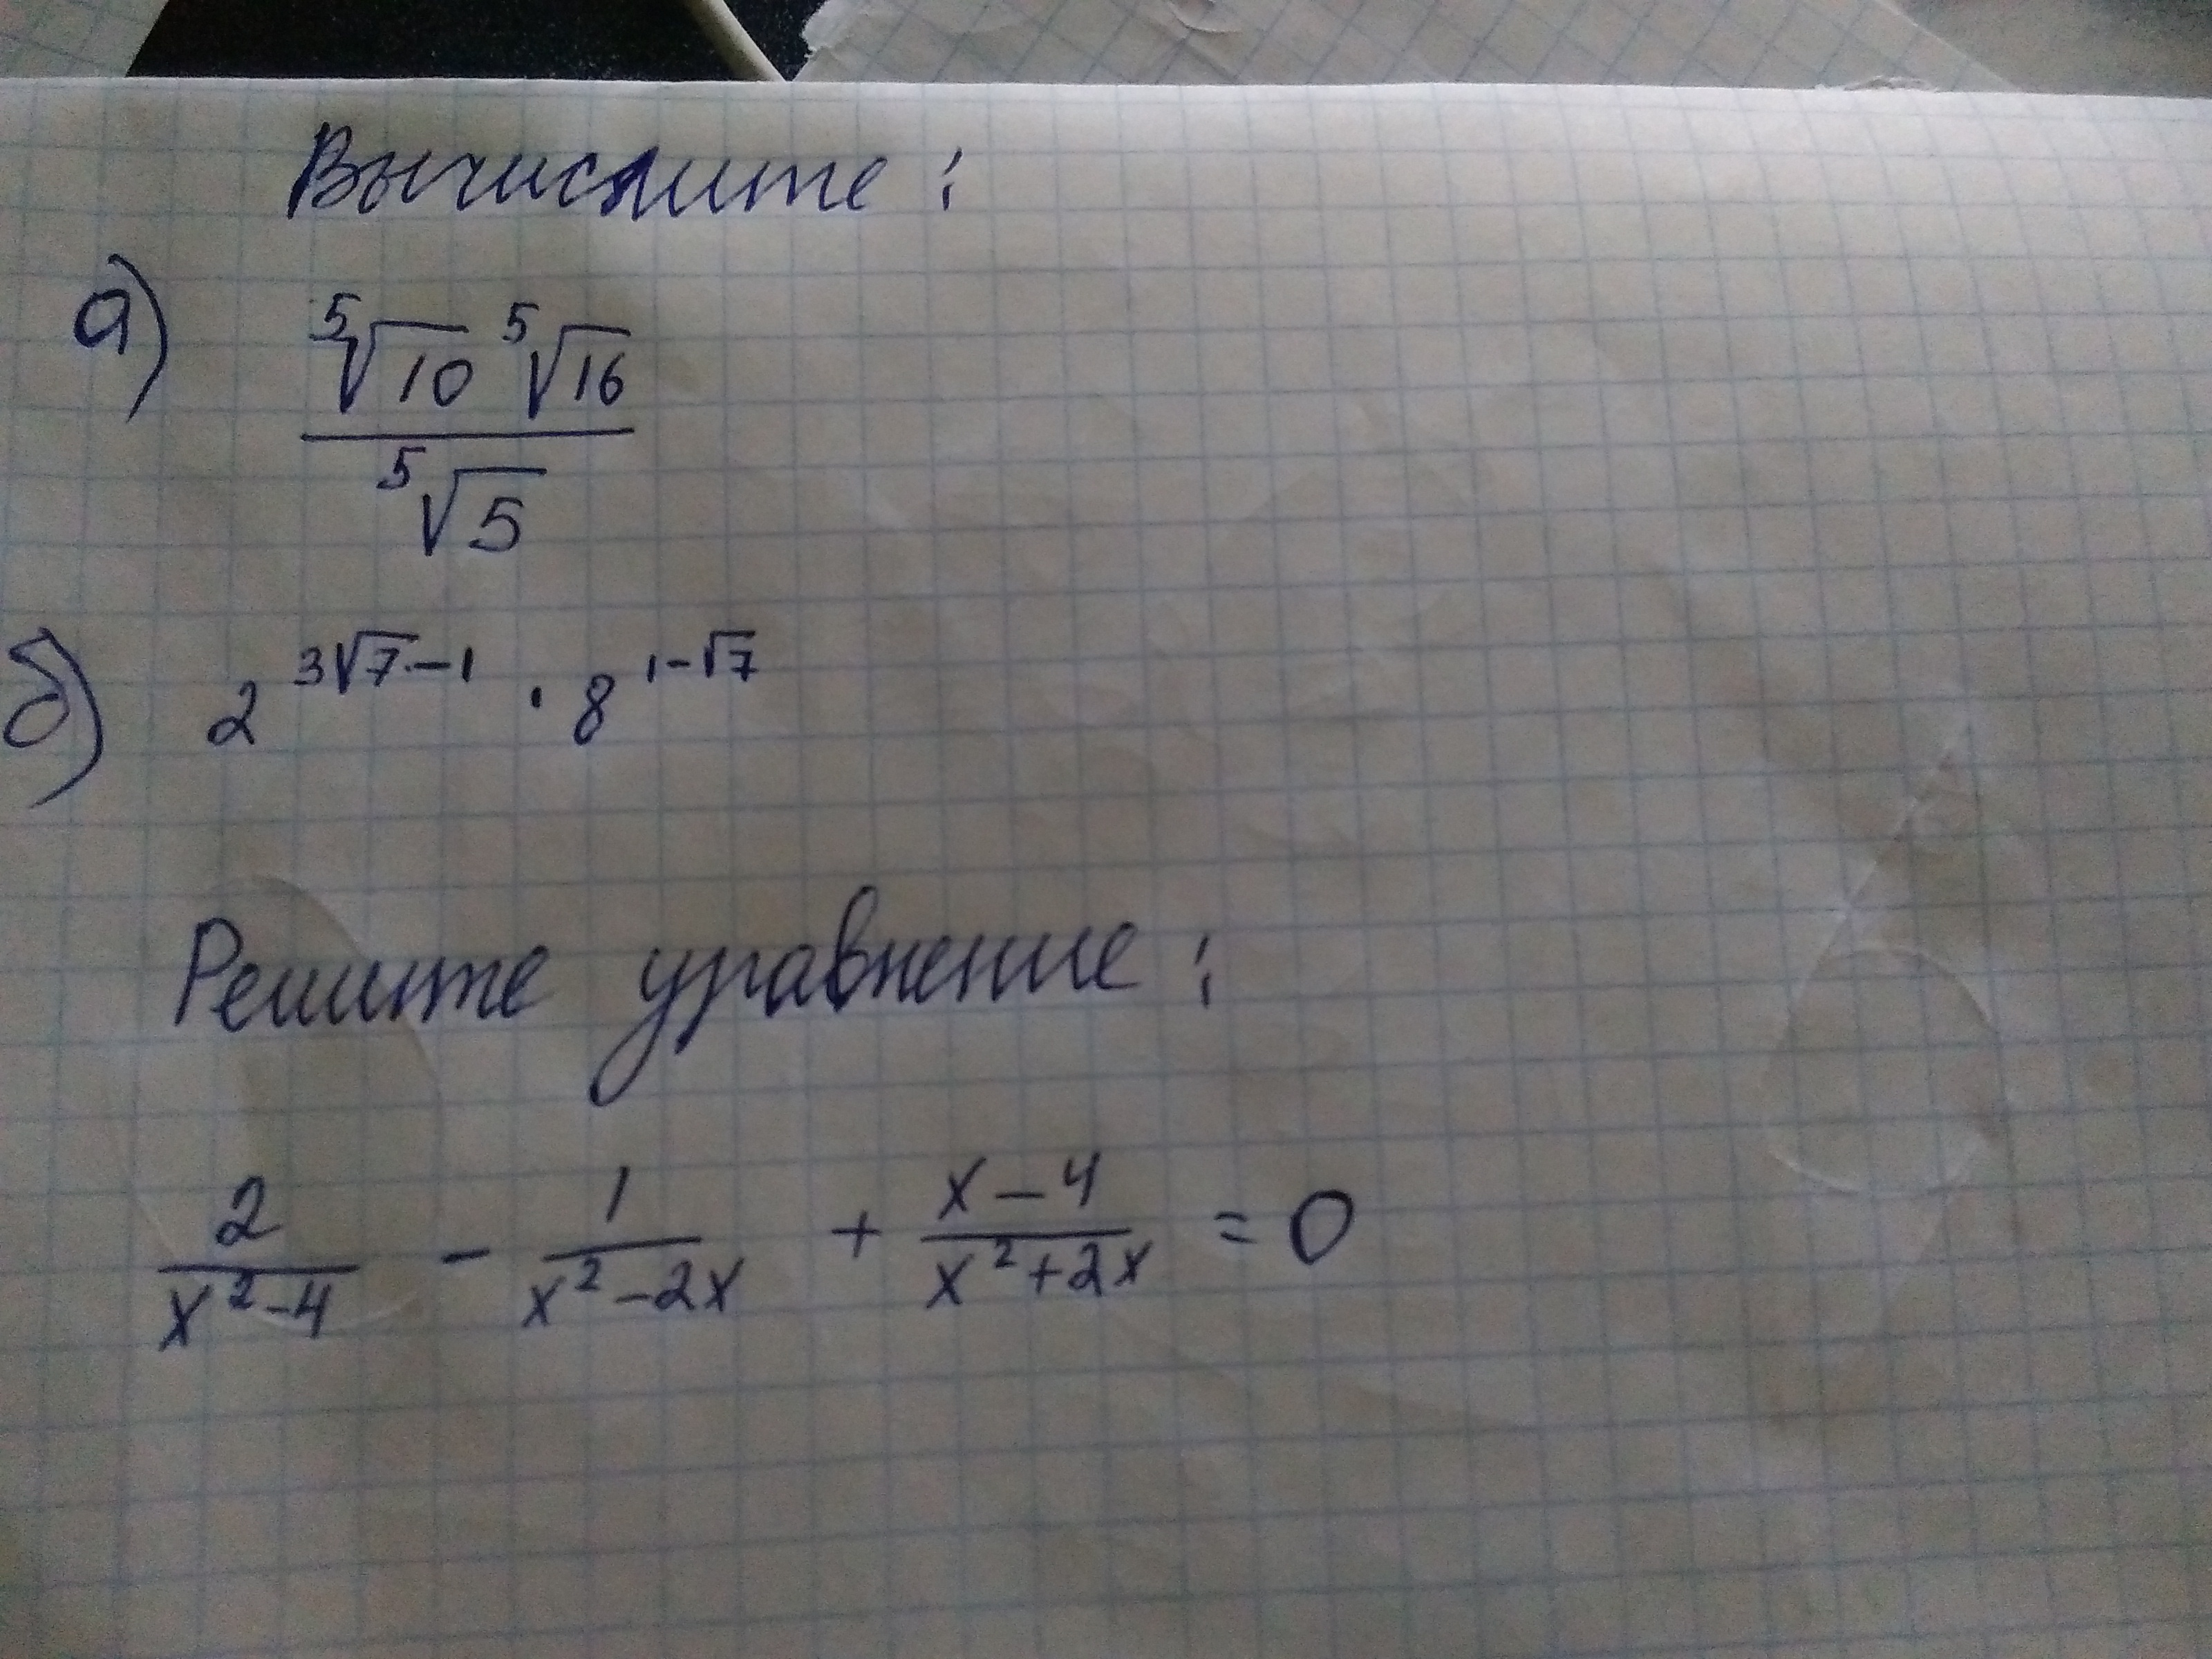 Вычислите:
а) (⁵√10 ⁵√16) / ⁵√5
б) 2^(3√7-1) · 8^(1-√7)
Решите уравнение:
2/(x²-4) - 1/(x²-2x) + (x-4)/(x²+2x) = 0